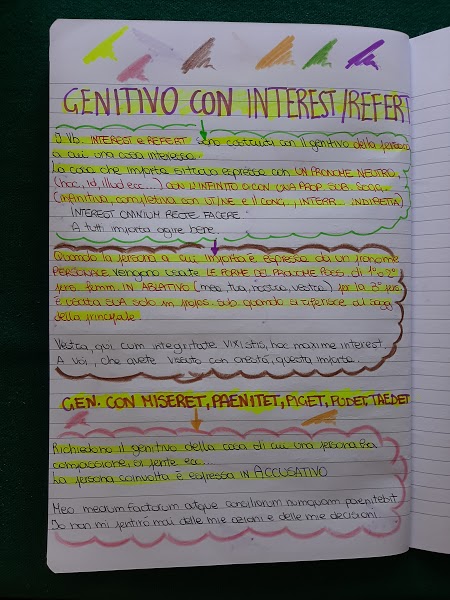 GENITIVO CON INTEREST/REFERT
I Vb. INTEREST e REFERT sono costruiti con il genitivo della persona
a cui una cosa interessa.
La cosa che importa si trova espressa con UN PRONOME NEUTRO,
(hoc, id, illud ecc...) CON L'INFINITO O CON UNA PROP. SUB. SOGG.
(infinitiva, completiva con UT/NE e il CONG, INTERR. INDIRETTA)
INTEREST OMNIUM RECTE FACERE
A tutti importa agire bene.
Quando la persona a cui importa è espressa da un pronome
PERSONALE vengono usate LE FORME DEL PRONOME POSS. di 1° o 2°
pers. femm. IN ABLATIVO (mea, tua, nostra, vestra) per la 3° pers
è usata SUA solo in propos. sub. quando si riferisce al sogg
della principale.
Vestra, qui cum integritate vixistis, hoc maxime interest.
A voi, che avete vissuto con onestà, questo importa.
GEN. CON MISERET, PAENITET, PIGET, PUDET, TAEDET
Richiedono il genitivo della cosa di cui una persona ha
compassione, si pente ecc...
La persona coinvolta è espressa in ACCUSATIVO
Me meorum factorum atque consiliorum numquam paenitebit
Io non mi pentirò mai delle mie azioni e delle mie decisioni...